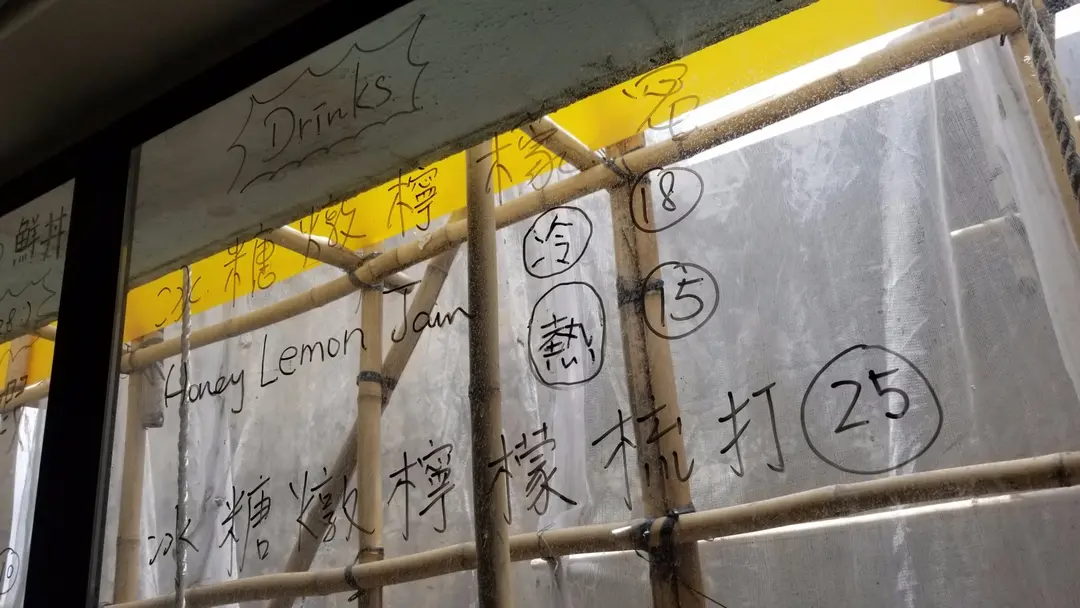 Drinks
冰糖燉檸檬蜜
冷 18
Honey Lemon Jam
熱 15
冰糖燉檸檬梳打 25
鮮丼